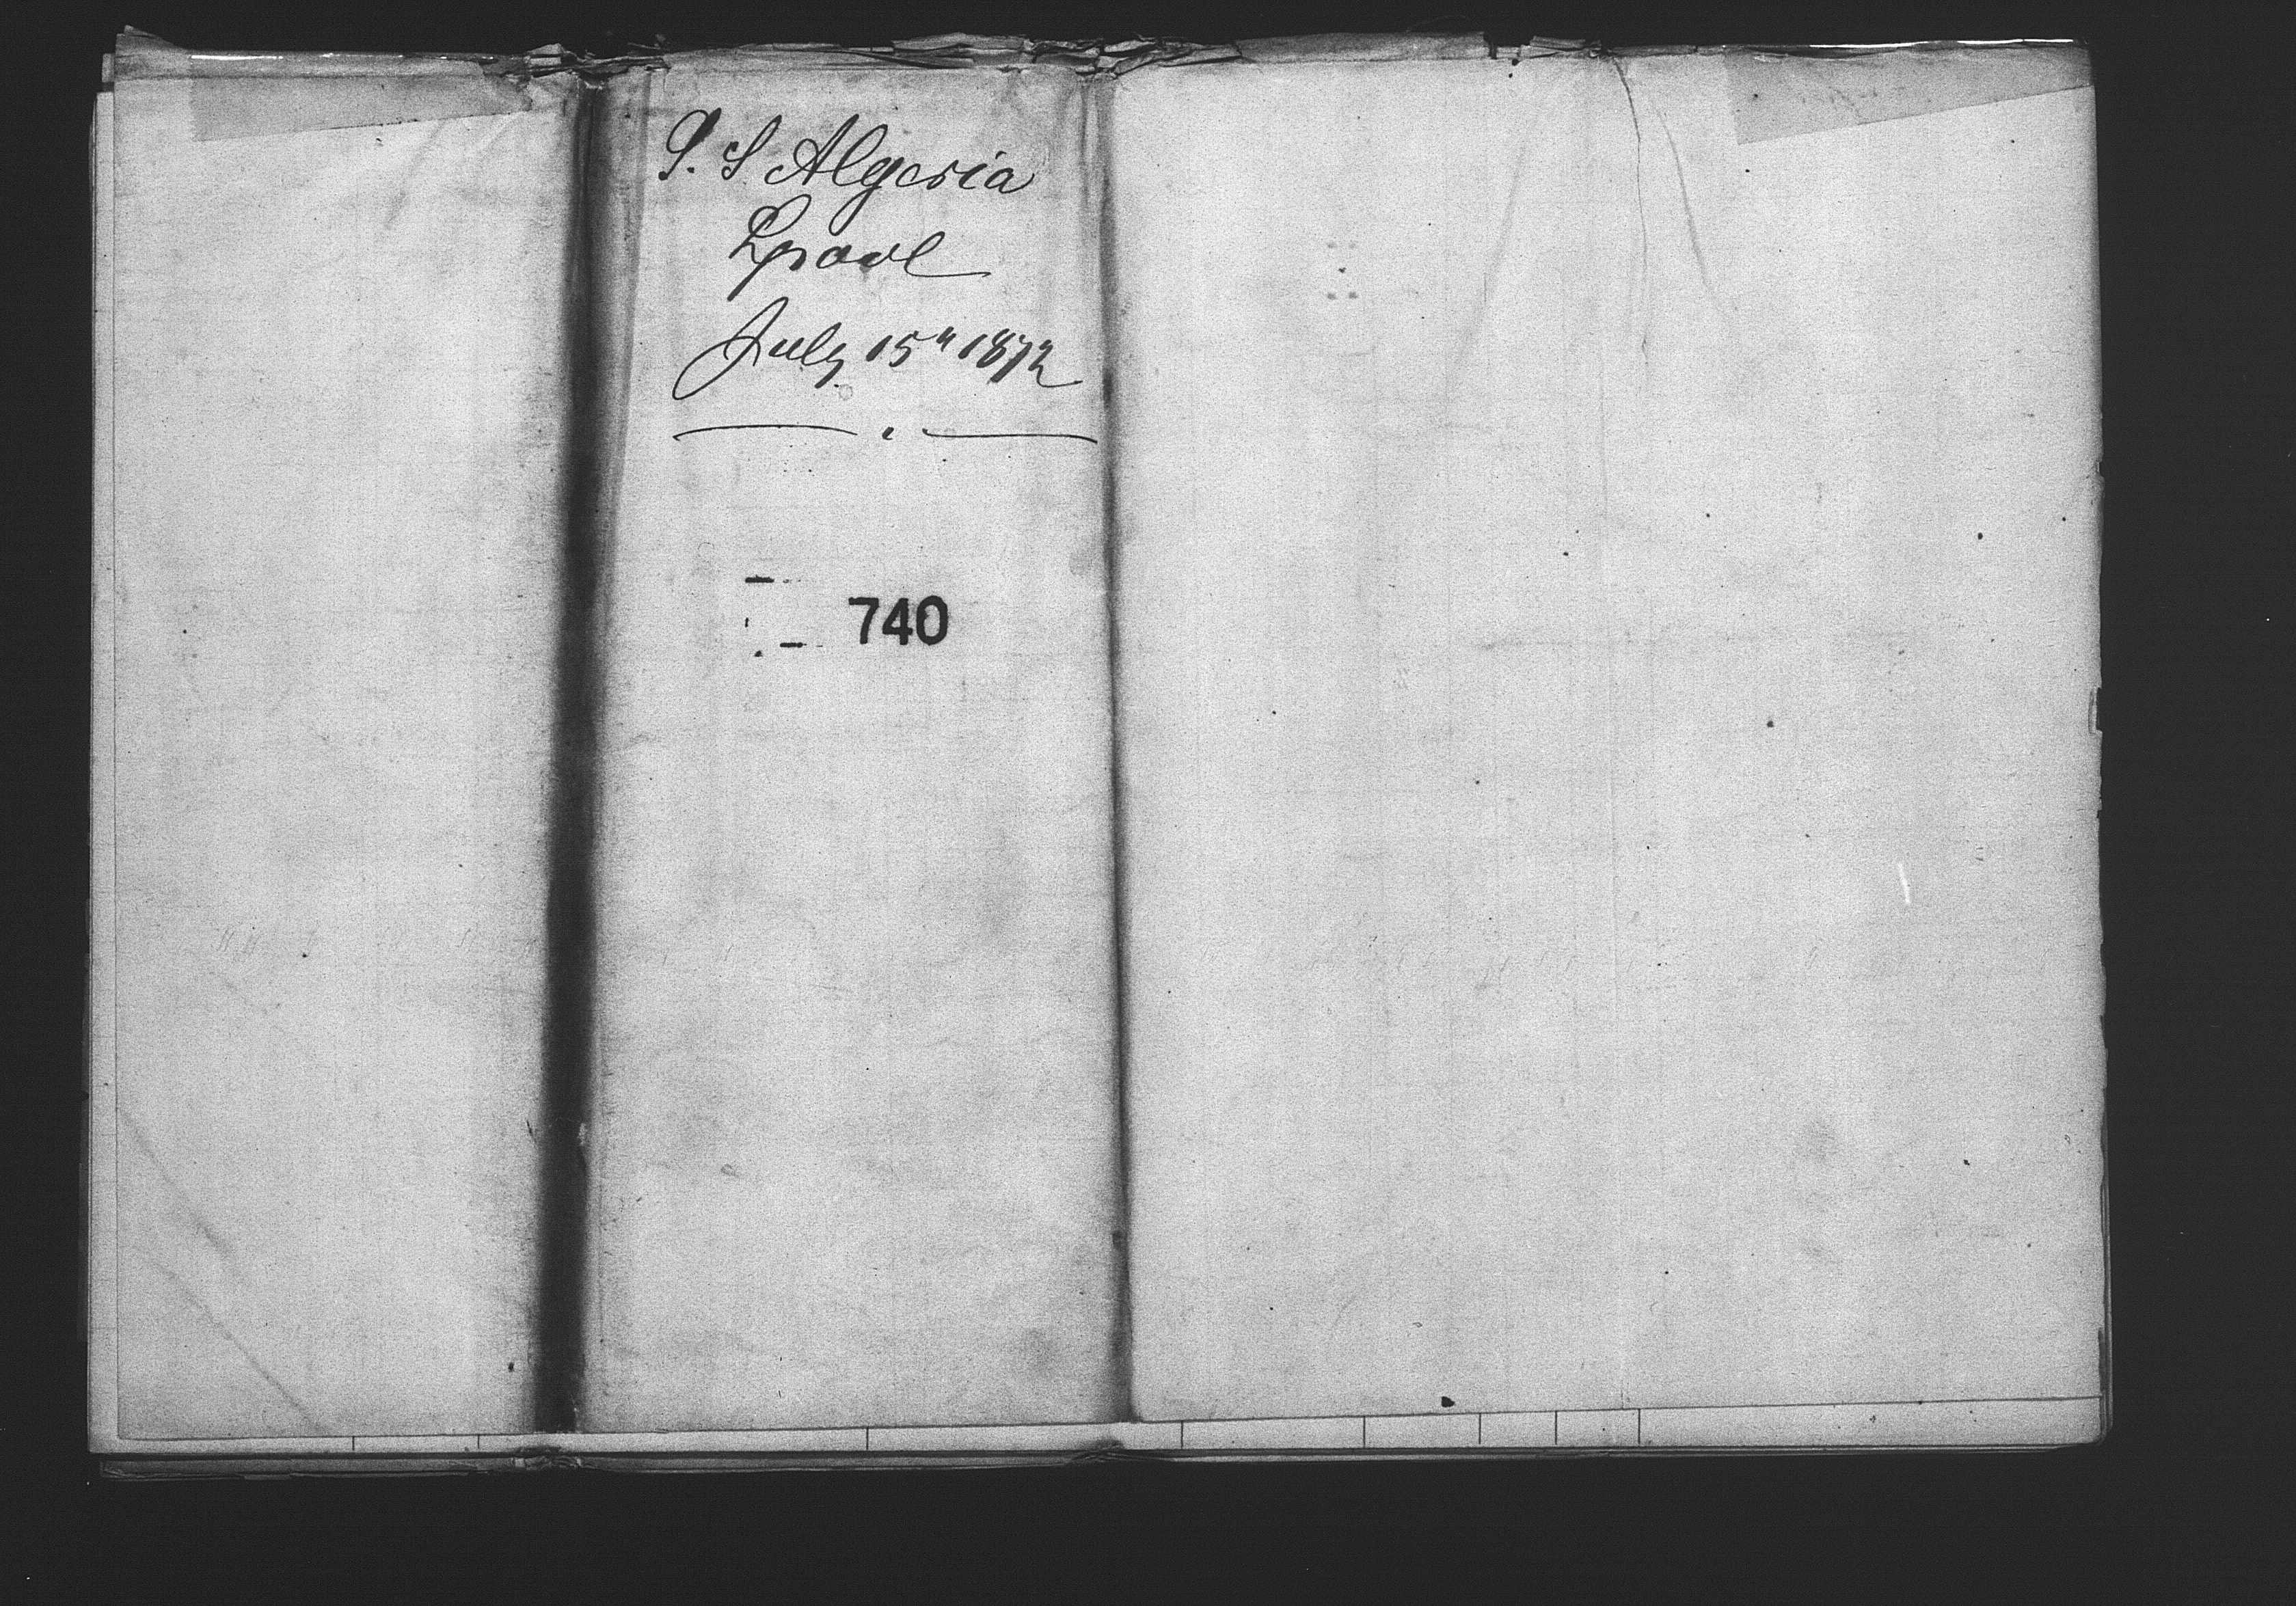 S. S Algeria
Lpool
July 15" 1872
740